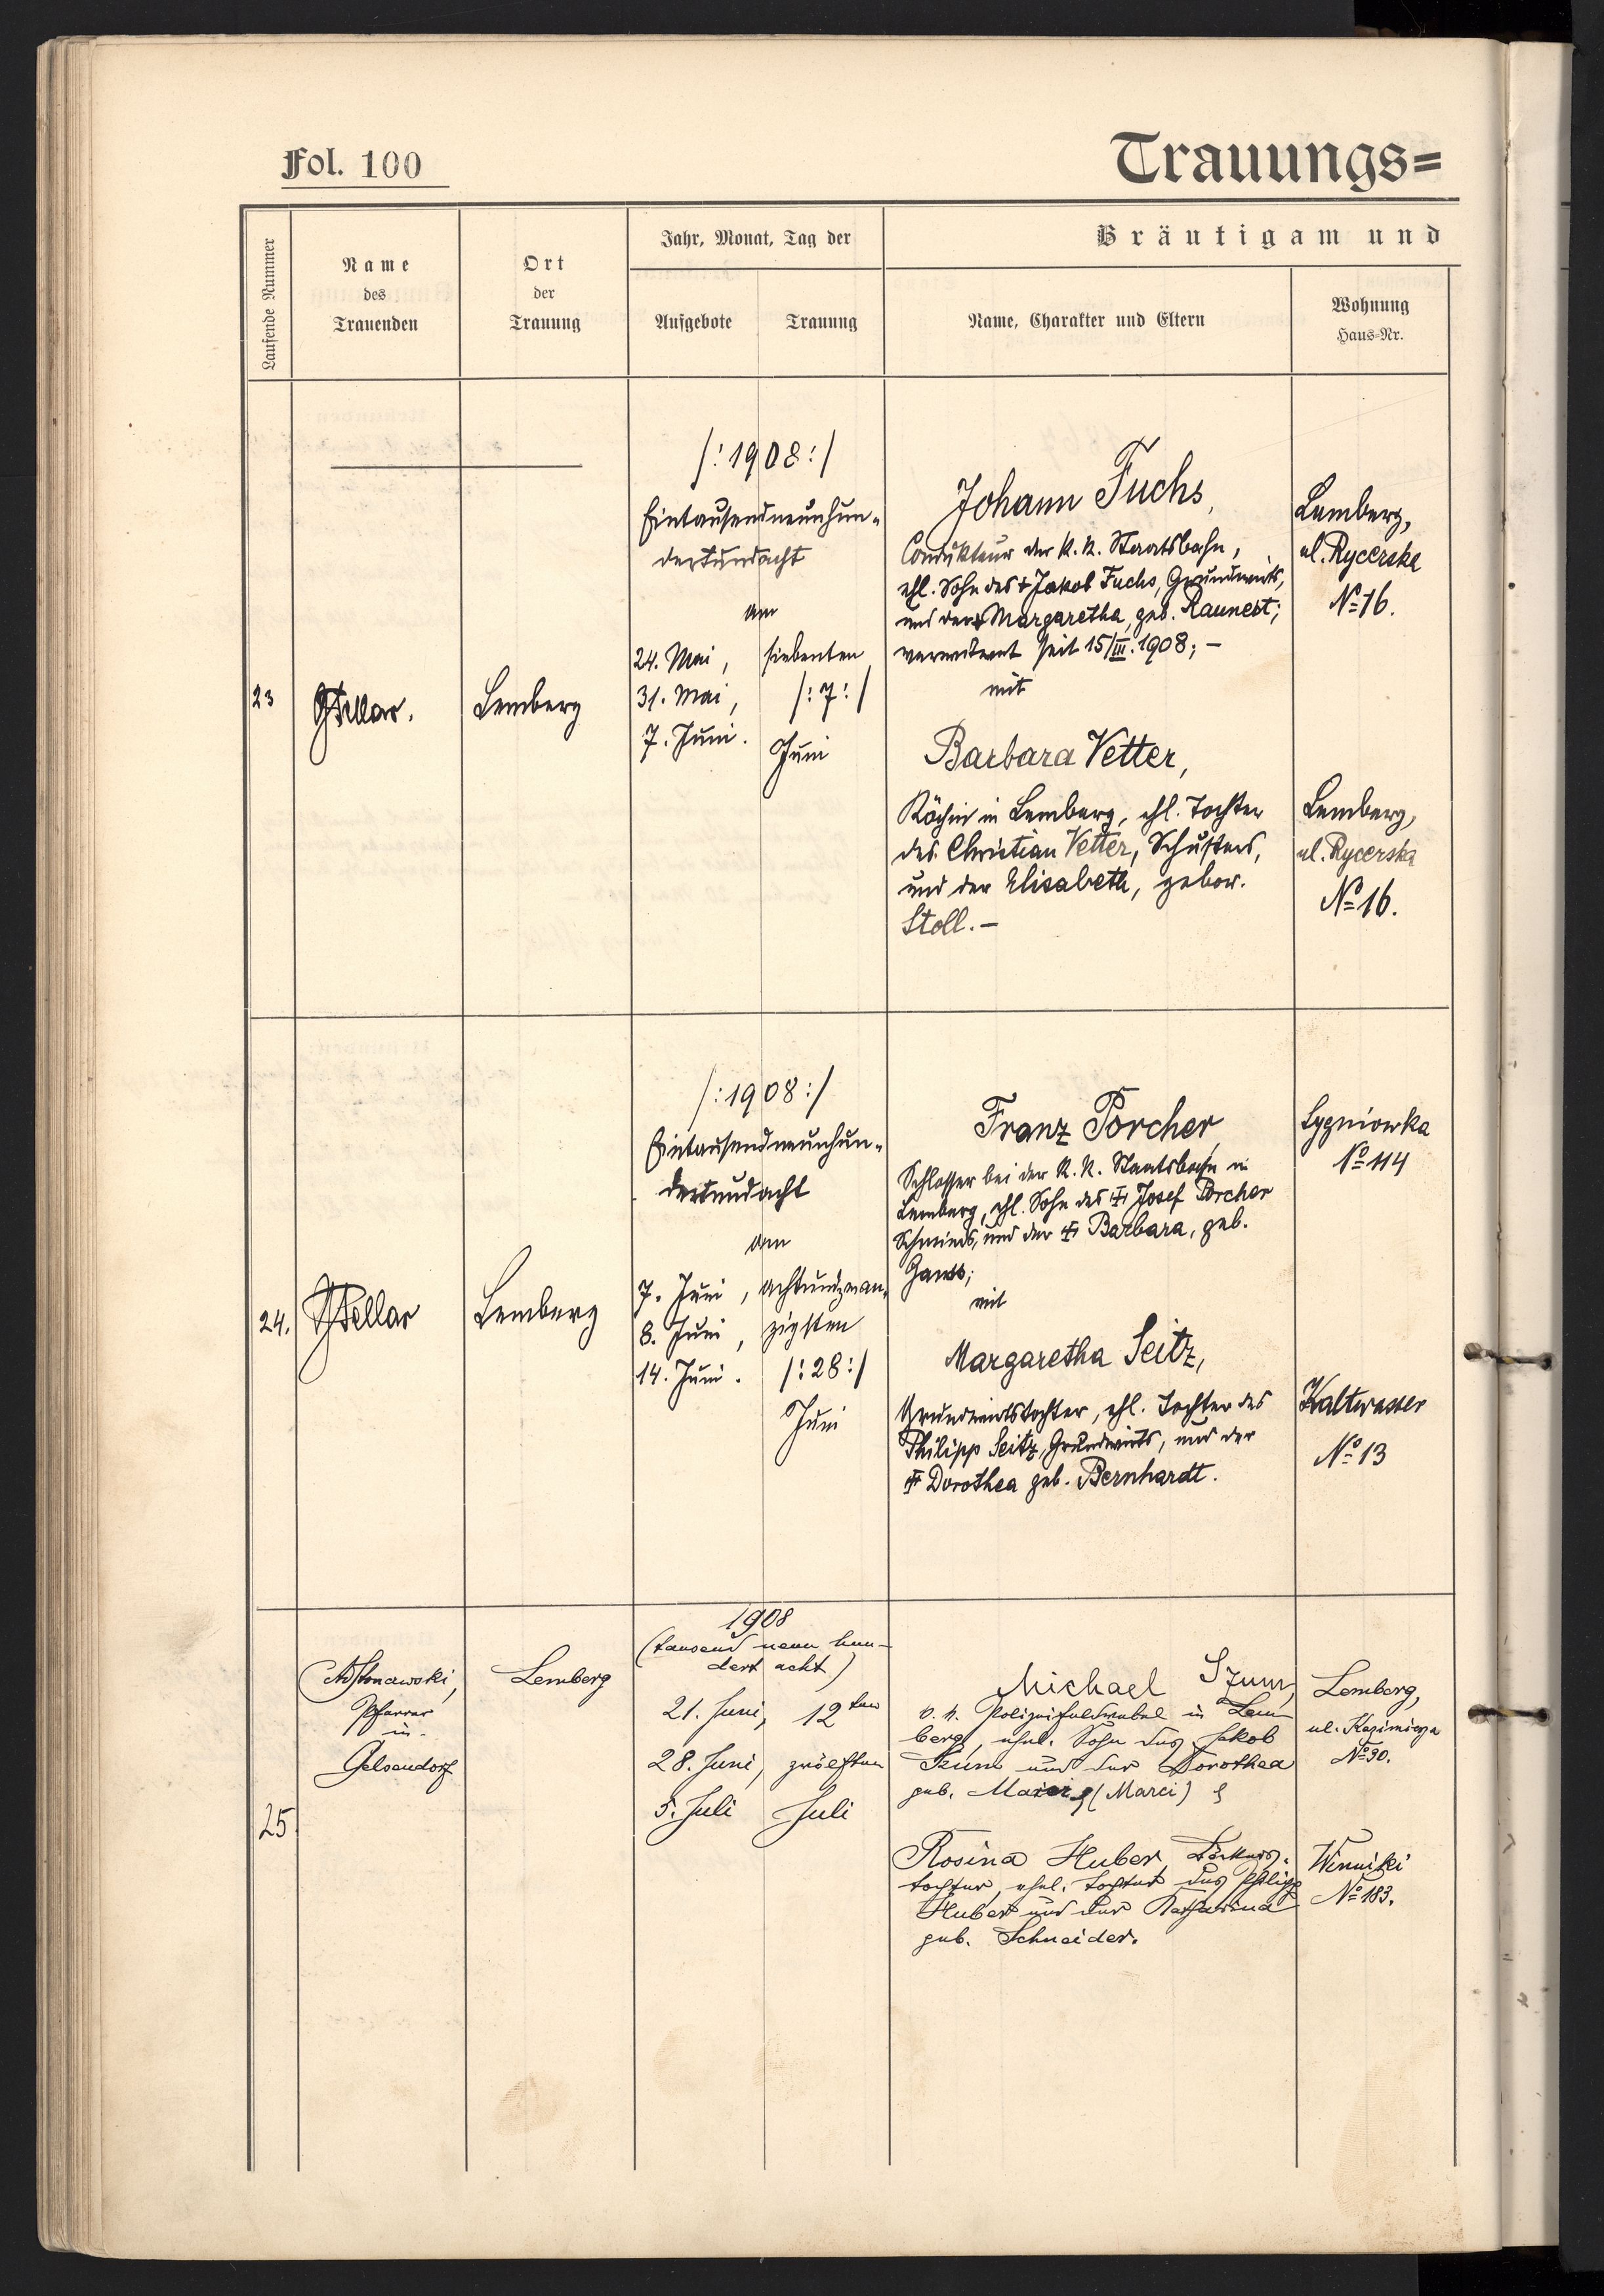 Fol. 100
Trauungs=
Laufende Nummer
Name
des
Trauenden
Ort
der
Trauung
Jahr, Monat, Tag der
Aufgebote
Trauung
Bräutigam und
Name, Charakter und Eltern
Wohnung
Haus=Nr.
23
Lemberg
/:1908:/
Eintausendneunhun-
dertundacht
am
24. Mai,
31. Mai,
7. Juni.
siebenten
/:7:/
Juni
Johann Fuchs,
Condukteur der k. k. Staatsbahn,
ehl. Sohn des + Jakob Fuchs, Grundwirts,
und der + Margaretha, geb. Raunest;
verwitwet seit 15/III. 1908; –
mit
Barbara Vetter,
Köchin in Lemberg, ehl. Tochter
des Christian Vetter, Schusters,
und der Elisabeth, gebor.
Stoll. –
Lemberg,
ul. Rycerska
No 16.
Lemberg,
ul. Rycerska
No 16.
24.
Lemberg
/:1908:/
Eintausendneunhun-
dertundacht
am
7. Juni,
8. Juni,
14. Juni.
achtundzwan-
zigsten
/:28:/
Juni
Franz Porcher,
Schlosser bei der k. k. Staatsbahn in
Lemberg, ehl. Sohn des + Josef Porcher
Schmieds, und der + Barbara, geb.
mit
Margaretha Seitz,
Grundwirtstochter, ehl. Tochter des
Philipp Seitz, Grundwirts, und der
+ Dorothea geb. Bernhardt.
Sygniowka
No 114
Kaltwasser
No 13
25.
Pfarrer
in
Gelsendorf
Lemberg
1908
(tausend neun hun-
dert acht)
21. Juni,
28. Juni,
5. Juli
12ten
zwölften
Juli
Michael Szum,
k. k. Polizeifeldwebel in Lem-
berg, ehel. Sohn des Jakob
Szum und der Dorothea
geb. (Marci)
Rosina Huber,
tochter, ehel. Tochter des Philipp
Huber und der Katharina
geb. Schneider.
Lemberg,
ul. Kazimierza
No 30.
Winniki
No 183.